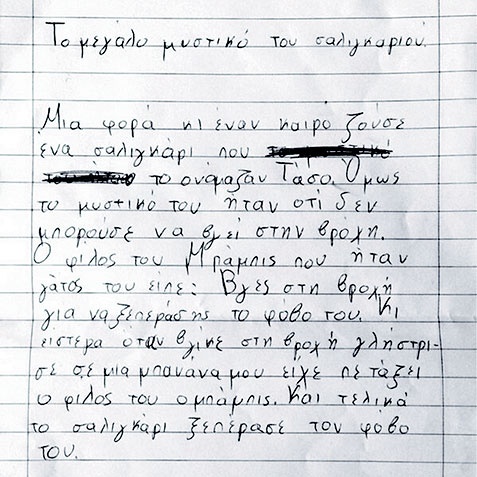 Το μεγάλο μυστικό του σαλιγκαριού.
Μια φορά κι έναν καιρο ζούσε
ένα σαλιγκάρι που
το ονόμαζαν Τάσο. Όμως
το μυστικό του ήταν οτί δεν
μπορούσε να βγεί στην βροχή.
Ο φίλος του Μπάμπις που ήταν
γάτος του είπε: Βγές στη βροχή
για να ξεπεράσης το φόβο του. Κι
ειστερα όταν βγίκε στη βροχή γλήστρι-
σε σε μια μπανάνα μου είχε πετάξει
ο φίλος του ο μπάμπις. Και τελικά
το σαλιγκάρι ξεπέρασε τον φόβο
του.